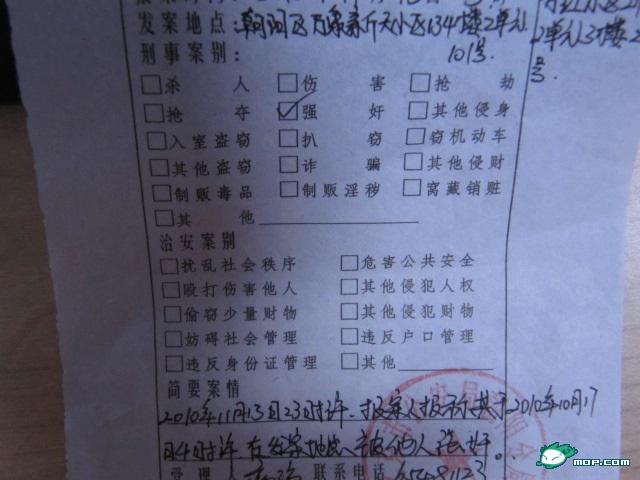 发案地点：朝阳区万象新天小区134楼2单元
2单元3楼2
刑事案别： 101号.
号.
□杀 人 □伤 害 □抢 劫
□抢 夺 ☑强 奸 □其他侵身
□入室盗窃 □扒 窃 □窃机动车
□其他盗窃 □诈 骗 □其他侵财
□制贩毒品 □制贩淫秽 □窝藏销赃
□其 他
治安案别
□扰乱社会秩序 □危害公共安全
□殴打伤害他人 □其他侵犯人权
□偷窃少量财物 □其他侵犯财物
□妨碍社会管理 □违反户口管理
□违反身份证管理 □其他
简要案情
2010年11月13日23时许，报案人报称其于2010年10月17
日4时许，在发案地点被他人强奸。
受理 联系电话
mop.com